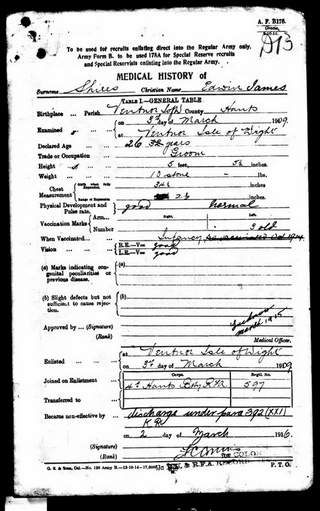 A. F. B178.
To be used for recruits enlisting direct into the Regular Army only.
Army Form B. to be used 178A for Special Reserve recruits
and Special Reservists enlisting into the Regular Army.
MEDICAL HISTORY of
Surname Shiers Christian Name Edwin James
TABLE I.—GENERAL TABLE
Birthplace ... Parish Ventnor County Hants
Examined on 3rd day of March 1909
at Ventnor Isle of Wight
Declared Age 26 years
Trade or Occupation Groom
Height 5 feet, inches
Weight 10 stone lbs.
Chest Measurement inches
inches
Physical Development and Pulse rate. good normal
Vaccination Marks Arm Right. Left.
Number 3 old
When Vaccinated... Infancy
Vision R.E.—V= good
L.E.—V= good
(a) Marks indicating congenital peculiarities or previous disease. (a)
(b) Slight defects but not sufficient to cause rejection. (b)
March 1915
Approved by (Signature)
(Rank) Medical Officer.
Enlisted at Ventnor Isle of Wight
on 3rd day of March 1909
Corps. Regtl. No.
Joined on Enlistment 597
Transferred to
Became non-effective by discharge under para 392 (XXI)
K.R.
on 2 day of March 1916.
(Signature)
(Rank) for COLONEL
P. T. O.